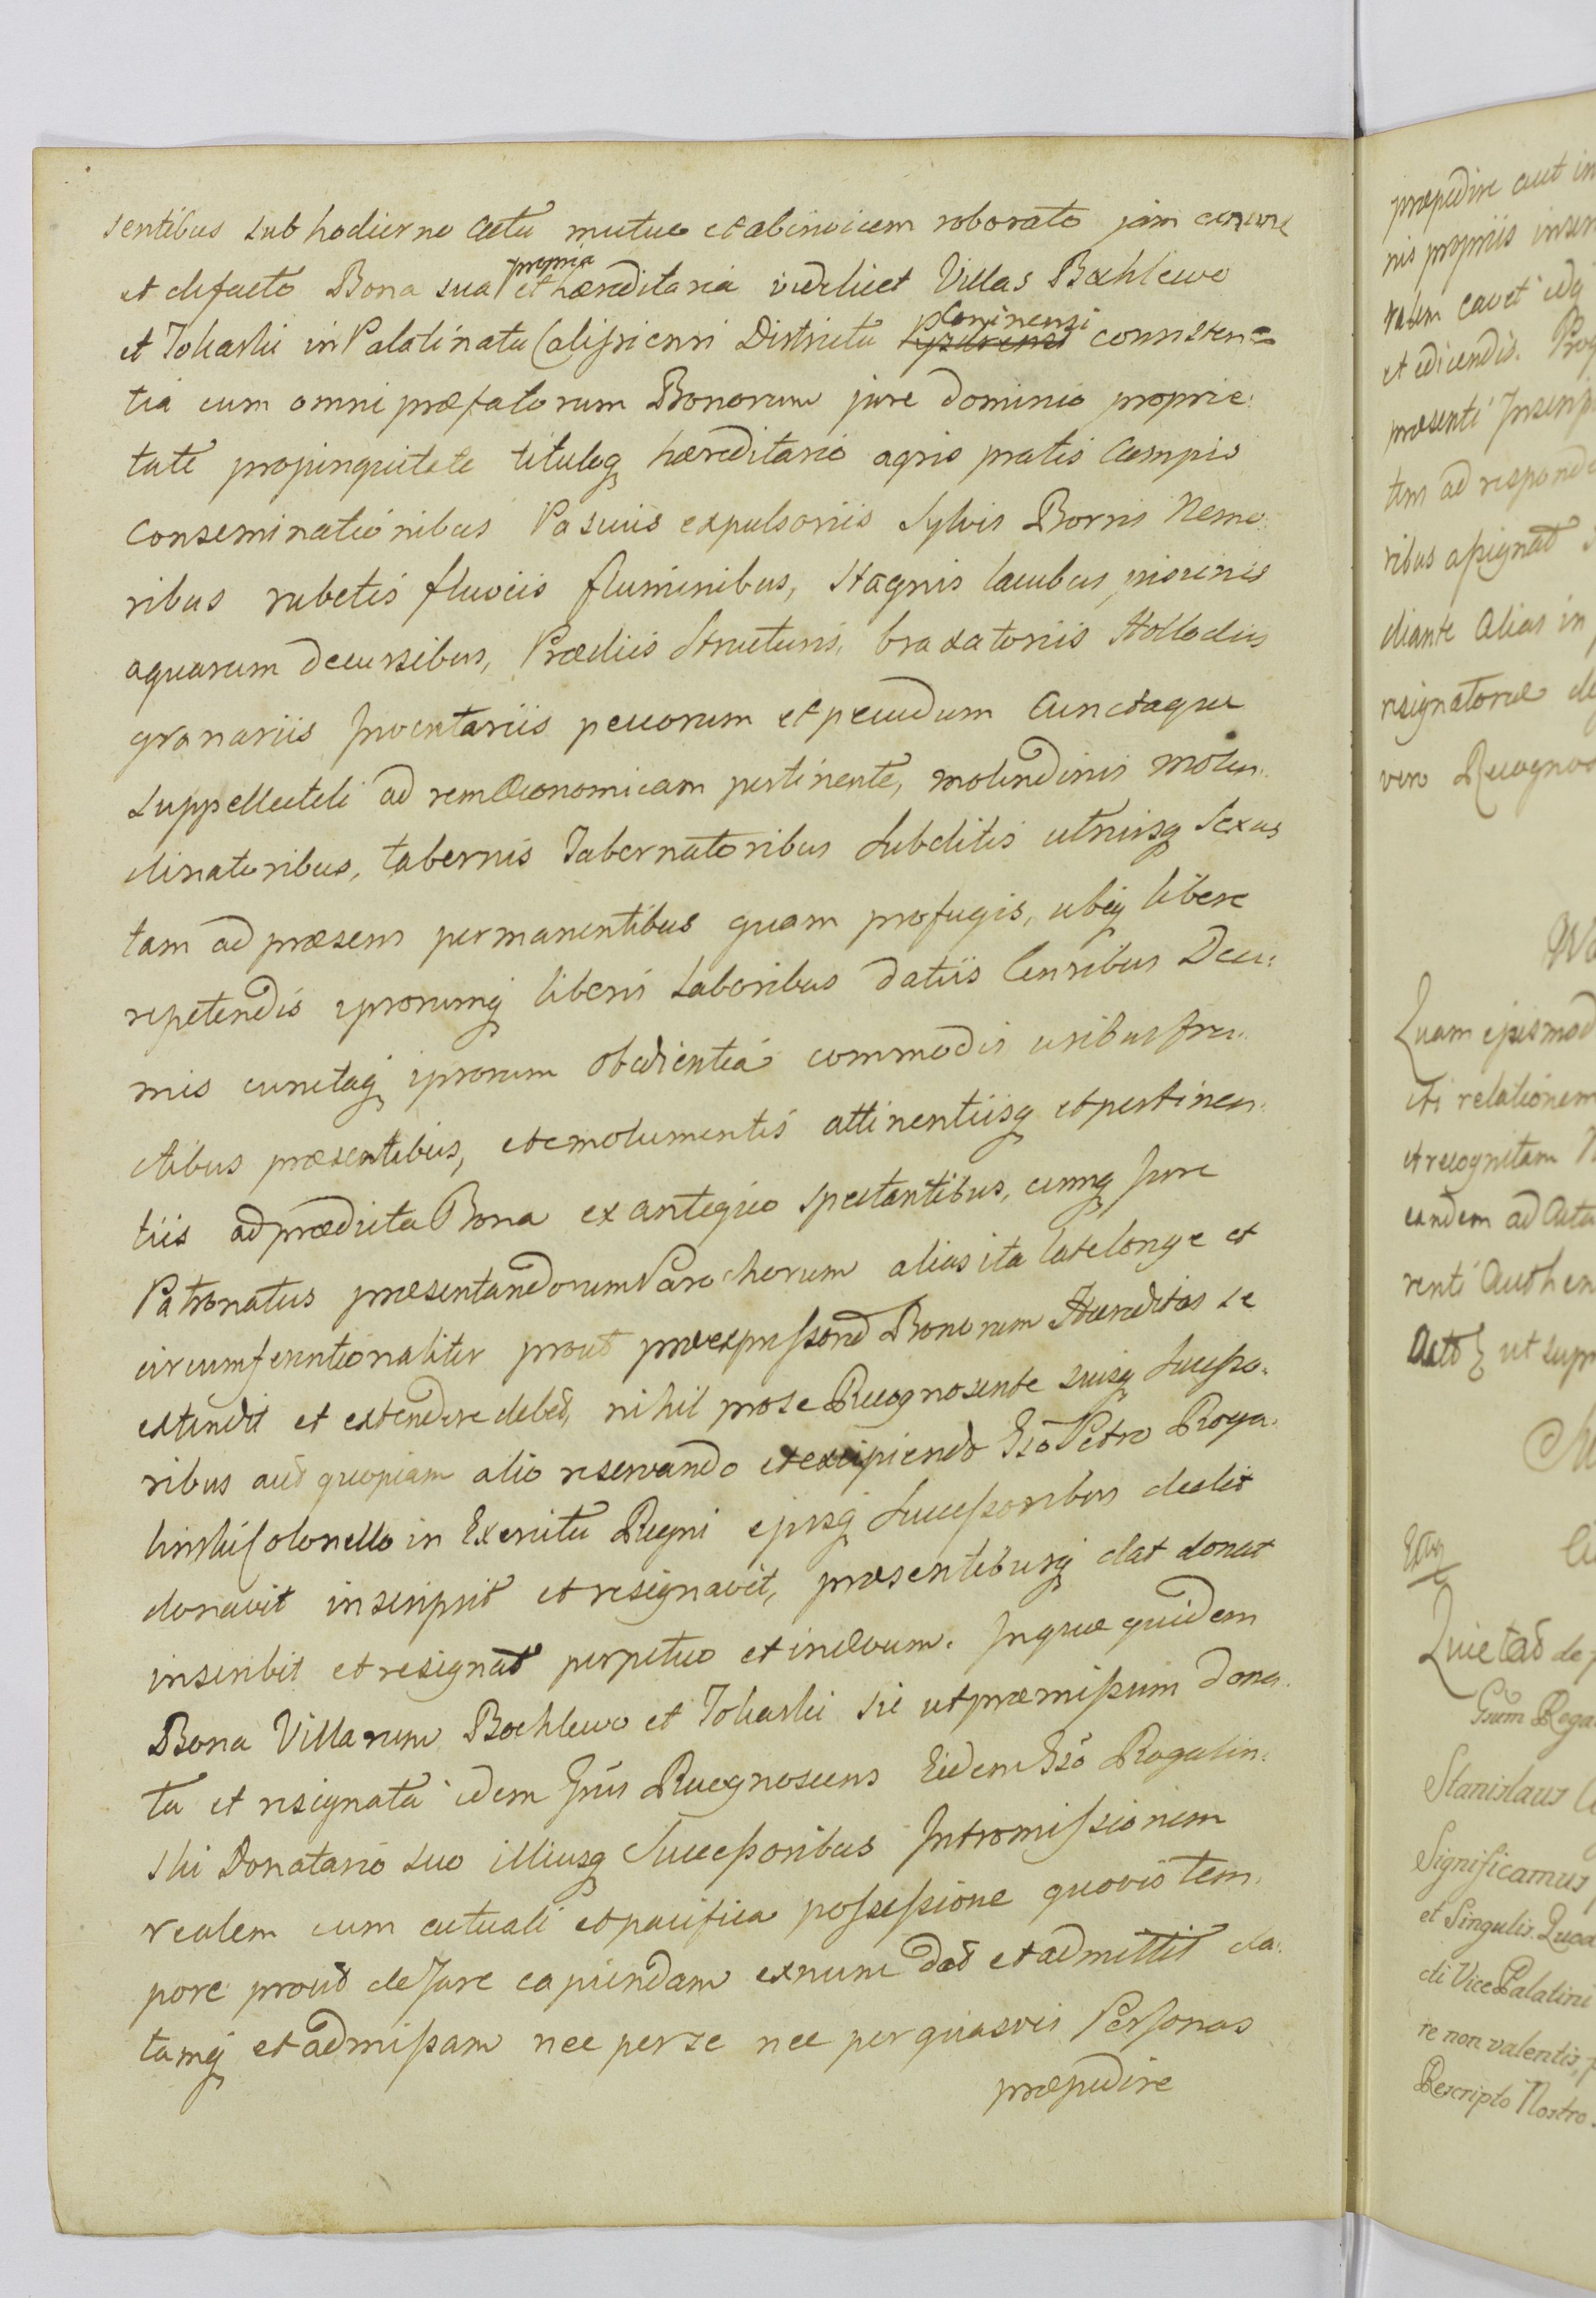 sentibus sub hodierno actu mutuo et abinvicem roborato jam ex nunc
et defacto Bona sua propria et hæreditaria videlicet Villas Bochlewo
et Tokarki in Palatinatu Calissiensi Districtu Coninensi consisten=
tia cum omni præfatorum Bonorum jure dominio proprie:
tate propinquitate tituloq hæreditario agris pratis Campis
conseminationibus Pascuis expulsoriis Sylvis Borris Nemo:
ribus rubetis fluviis fluminibus, Stagnis lacubus, piscinis
aquarum decursibus, Prædiis Structuris, braxatoriis Hollodiis
granariis Inventariis pecorum et pecudum Cunctaque
suppellectili ad rem Œconomicam pertinente, molendinis molen:
dinatoribus, tabernis Tabernatoribus Subditis utriusq Sexus
tam ad præsens permanentibus quam profugis, ubiq libere
repetendis ipsorumq liberis Laboribus datiis Censibus Deci:
mis cunctaq ipsorum obedientia commodis usibus fru:
ctibus præsentibus, et emolumentis attinentiisq et pertinen:
tiis ad prædicta Bona ex antiquo spectantibus, cumq Jure
Patronatus præsentandorum Parochorum alias ita late longe et
circumferentionaliter prout præexpressorum Bonorum Hæreditas se
extendit et extendere debet, nihil pro se Recognoscente suisq Successo:
ribus aut quopiam alio reservando et excipiendo Gso Petro Roga:
linski Colonello in Exercitu Regni ejusq Successoribus dedit
donavit inscripsit et resignavit, præsentibusq dat donat
inscribit et resignat perpetuo et in ævum. In quæ quidem
Bona Villarum Bochlewo et Tokarki sic ut præmissum dona:
ta et resignata idem Gsus Recognoscens Eidem Gso Rogalin:
ski Donatario suo illiusq Successoribus Intromissionem
realem cum actuali et pacifica possessione quovis tem:
pore prout de Jure capiendam exnunc dat et admittit da:
tamq et admissam nec per se nec per quasvis Personas
præpedire
præpedire aut in
nis propriis inser
et edicendis.
præsenti Inscrip
tem ad responde
ribus assignat
diante alias in
resignatoriæ de
vero Recognos
Quam ejusmod
cti relationem
et recognitam
eandem ad Acta
renti Authen
ut supr
Quietat de
Gsum Roga
Stanislaus
Significamus
et Singulis. Quod
di Vice Palatini
re non valentis,
Rescripto Nostro